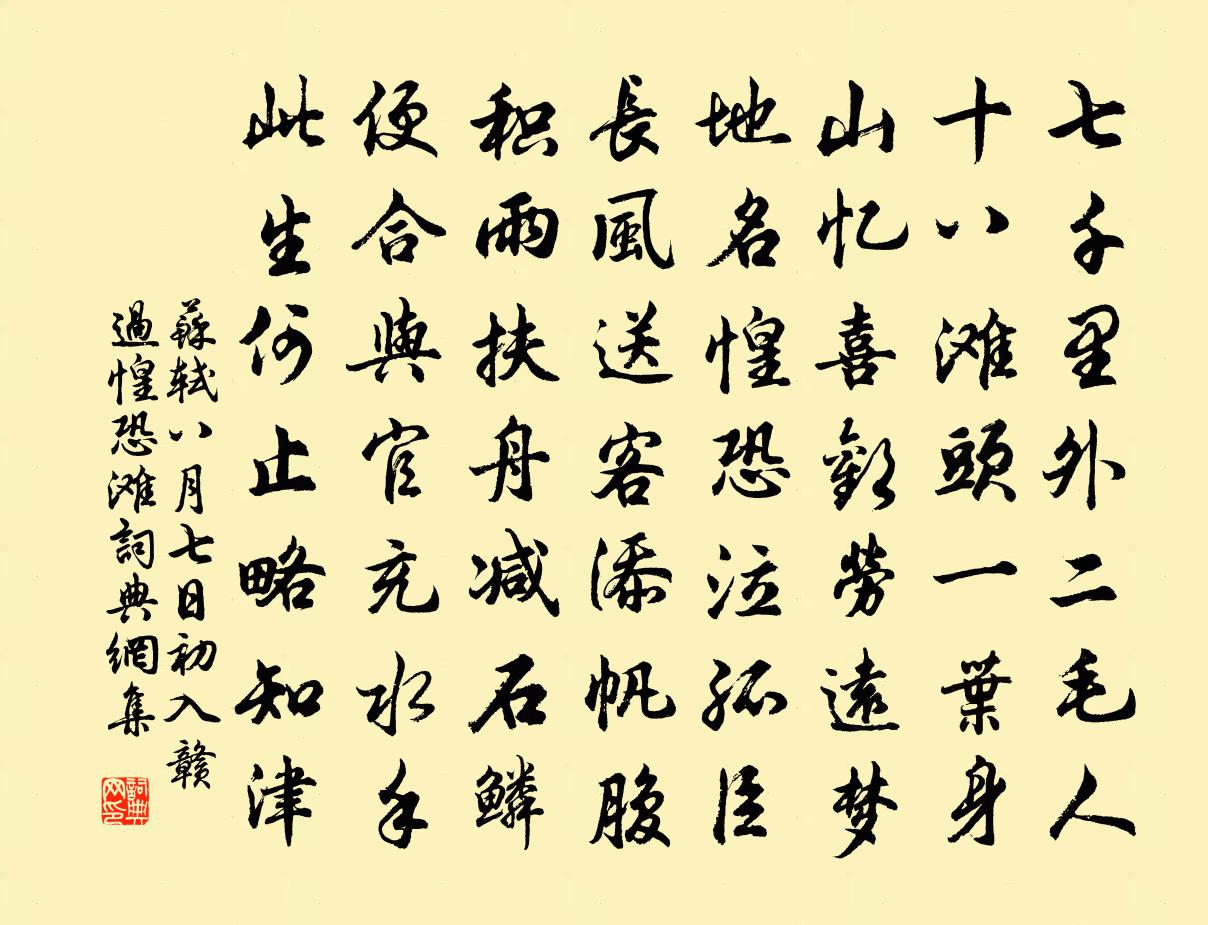 七千里外二毛人
十八滩頭一葉身
山忆喜歡勞遠梦
地名惶恐泣孤臣
長風送客添帆腹
积雨扶舟减石鳞
便合與官充水手
此生何止略知津
蘇轼八月七日初入贛
過惶恐滩詞典網集
詞典
网印